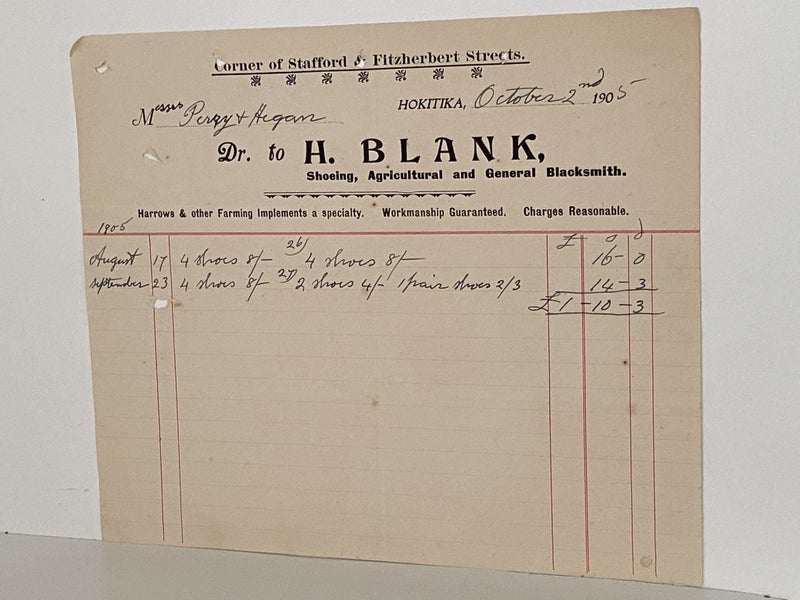 Corner of Stafford & Fitzherbert Streets.
Messrs Perry & Hegan
HOKITIKA, October 2nd 1905
Dr. to H. BLANK,
Shoeing, Agricultural and General Blacksmith.
Harrows & other Farming Implements a specialty. Workmanship Guaranteed. Charges Reasonable.
1905
£ s d
August 17 4 shoes 8/- 26/ 4 shoes 8/- 16-0
September 23 4 shoes 8/- 27/ 2 shoes 4/- 1 pair shoes 2/3 14-3
£1-10-3